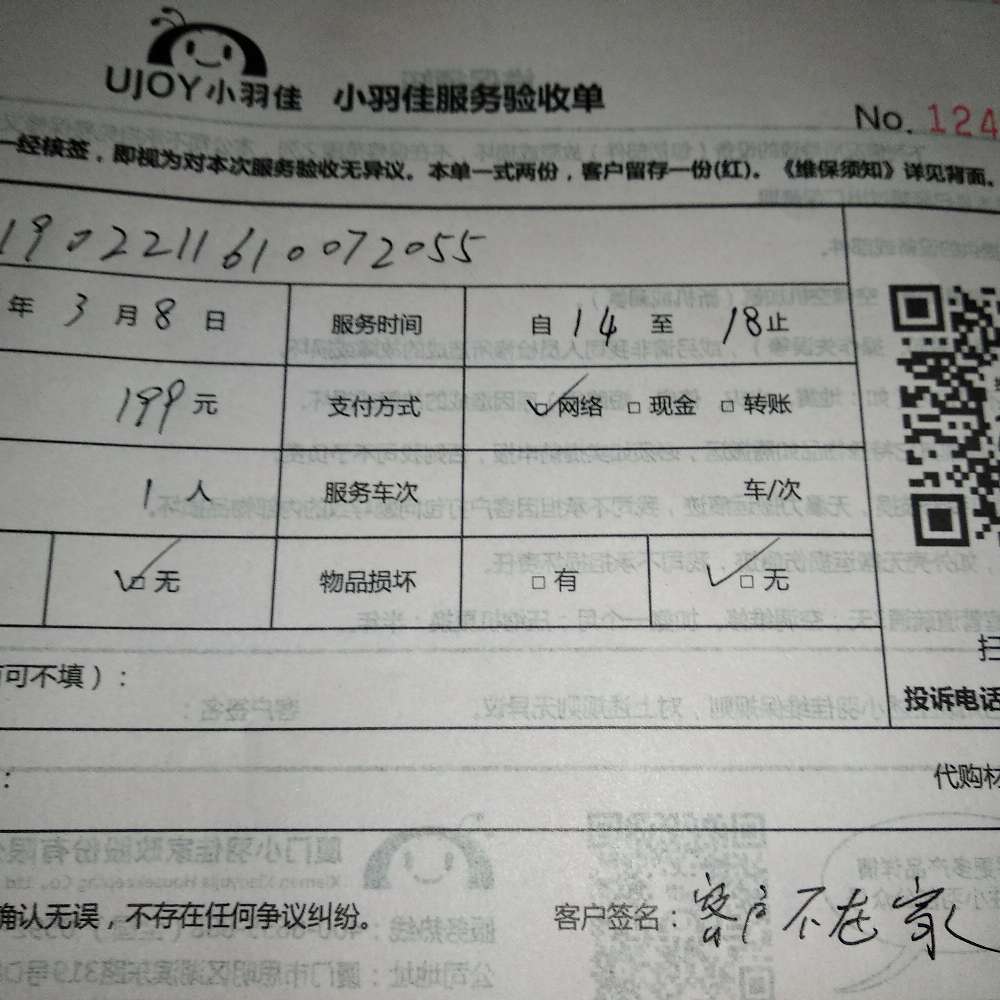 UJOY小羽佳 小羽佳服务验收单
No. 124
一经核签，即视为对本次服务验收无异议。本单一式两份，客户留存一份(红)。《维保须知》详见背面。
1902211610072055
年 3 月 8 日 服务时间 自 14 至 18 止
199 元 支付方式 ☑网络 □ 现金 □ 转账
1 人 服务车次 车/次
☑ 无 物品损坏 □ 有 ☑ 无
可不填）：
扫
投诉电话
：
代购材
确认无误，不存在任何争议纠纷。 客户签名：客户不在家